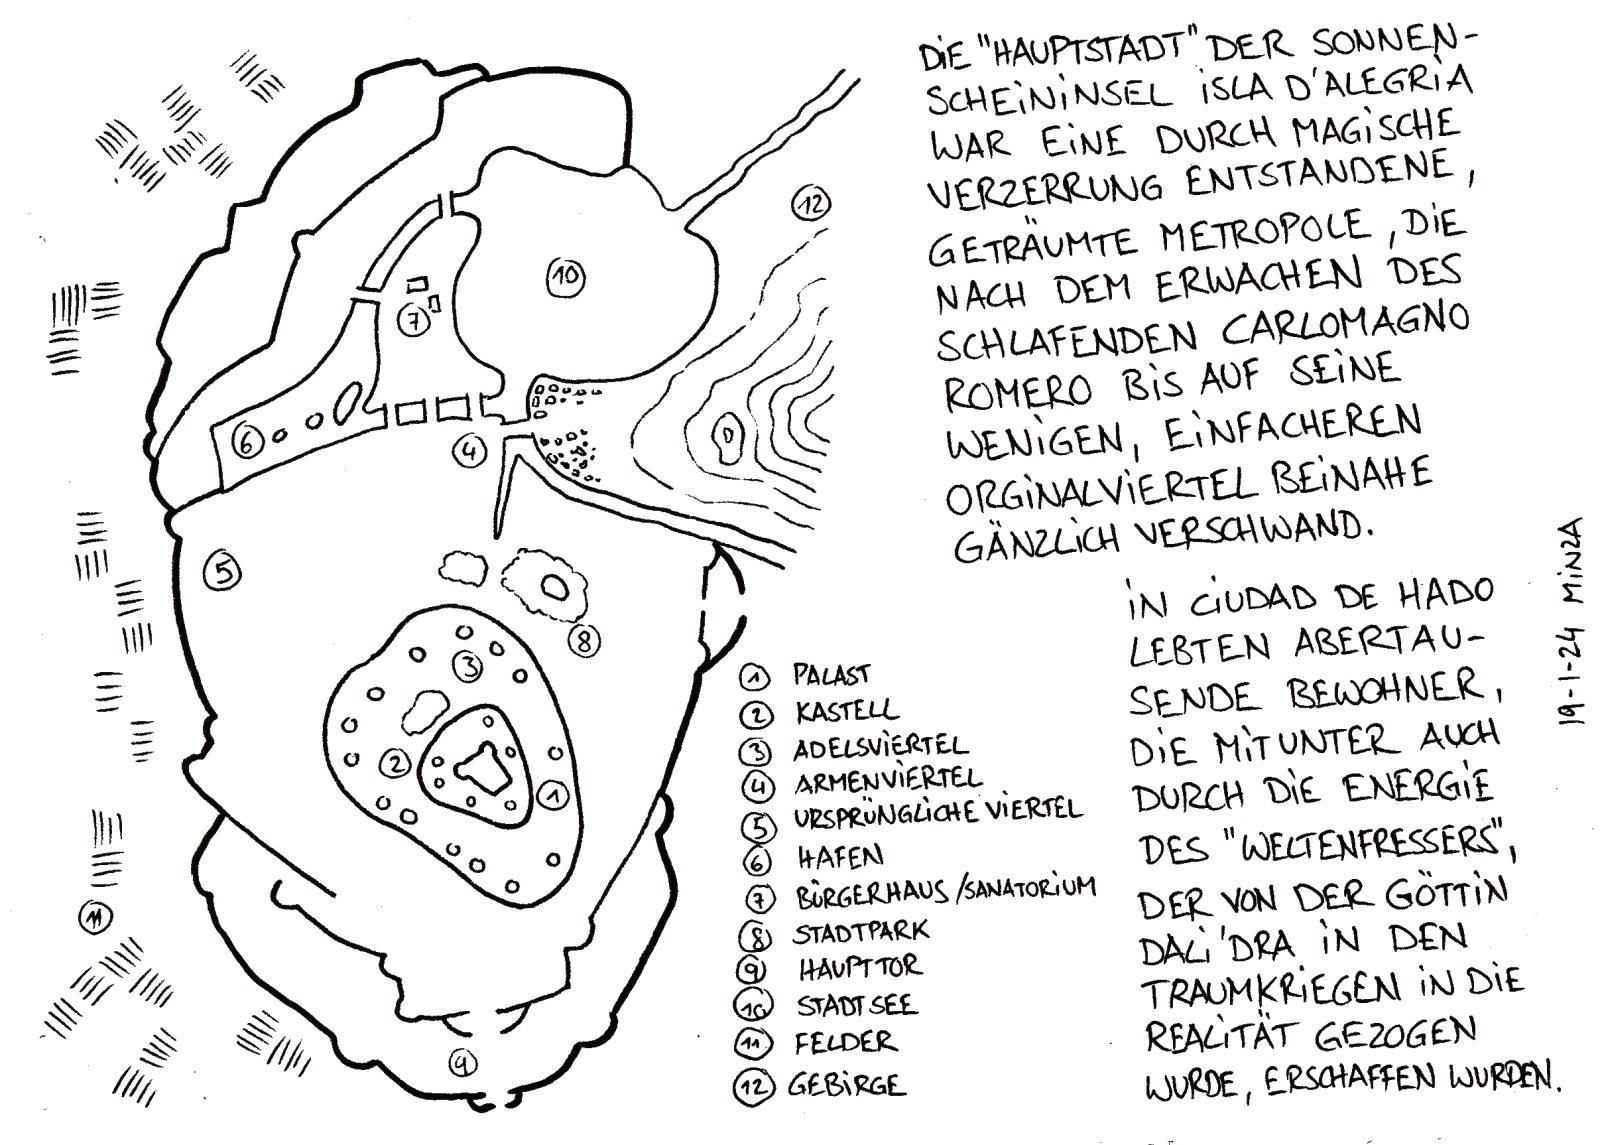 DIE "HAUPTSTADT" DER SONNEN-
SCHEININSEL ISLA D'ALEGRIA
WAR EINE DURCH MAGISCHE
VERZERRUNG ENTSTANDENE,
GETRÄUMTE METROPOLE, DIE
NACH DEM ERWACHEN DES
SCHLAFENDEN CARLOMAGNO
ROMERO BIS AUF SEINE
WENIGEN, EINFACHEREN
ORGINALVIERTEL BEINAHE
GÄNZLICH VERSCHWAND.
IN CIUDAD DE HADO
LEBTEN ABERTAU-
SENDE BEWOHNER,
DIE MITUNTER AUCH
DURCH DIE ENERGIE
DES "WELTENFRESSERS",
DER VON DER GÖTTIN
DALI'DRA IN DEN
TRAUMKRIEGEN IN DIE
REALITÄT GEZOGEN
WURDE, ERSCHAFFEN WURDEN.
19-1-24 MINZA
1 PALAST
2 KASTELL
3 ADELSVIERTEL
4 ARMENVIERTEL
5 URSPRÜNGLICHE VIERTEL
6 HAFEN
7 BÜRGERHAUS/SANATORIUM
8 STADTPARK
9 HAUPTTOR
10 STADTSEE
11 FELDER
12 GEBIRGE
12
10
7
6
4
5
8
3
2
1
11
9